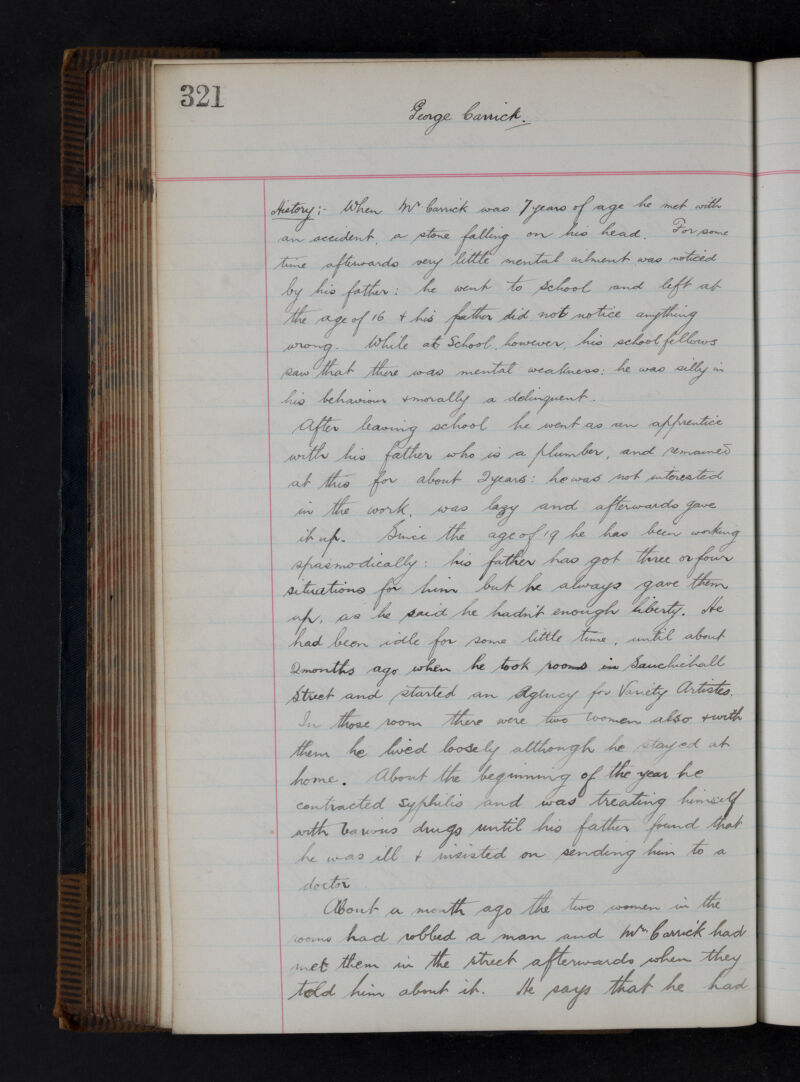 321
George Carrick.
History:- When Mr Carrick was 7 years of age he met with
an accident, a stone falling on his head. For some
time afterwards very little mental ailment was noticed
by his father: he went to school and left at
the age of 16 & his father did not notice anything
wrong. While at School, however, his schoolfellows
saw that there was mental weakness: he was silly in
his behaviour & morally a delinquent.
After leaving school he went as an apprentice
with his father who is a plumber, and remained
at this for about 2 years: he was not interested
in the work, was lazy and afterwards gave
it up. Since the age of 19 he has been working
spasmodically: his father has got three or four
situations for him but he always gave them
up, as he said he hadn't enough liberty. He
had been idle for some little time, until about
2 months ago when he took rooms in Sauchiehall
Street and started an Agency for Variety Artistes.
In those room there were two women also & with
them he lived loosely although he stayed at
home. About the beginning of the year he
contracted syphilis and was treating himself
with various drugs until his father found that
he was ill & insisted on sending him to a
doctor
About a month ago the two women in the
rooms had robbed a man and Mr Carrick had
met them in the street afterwards when they
told him about it. He says that he had